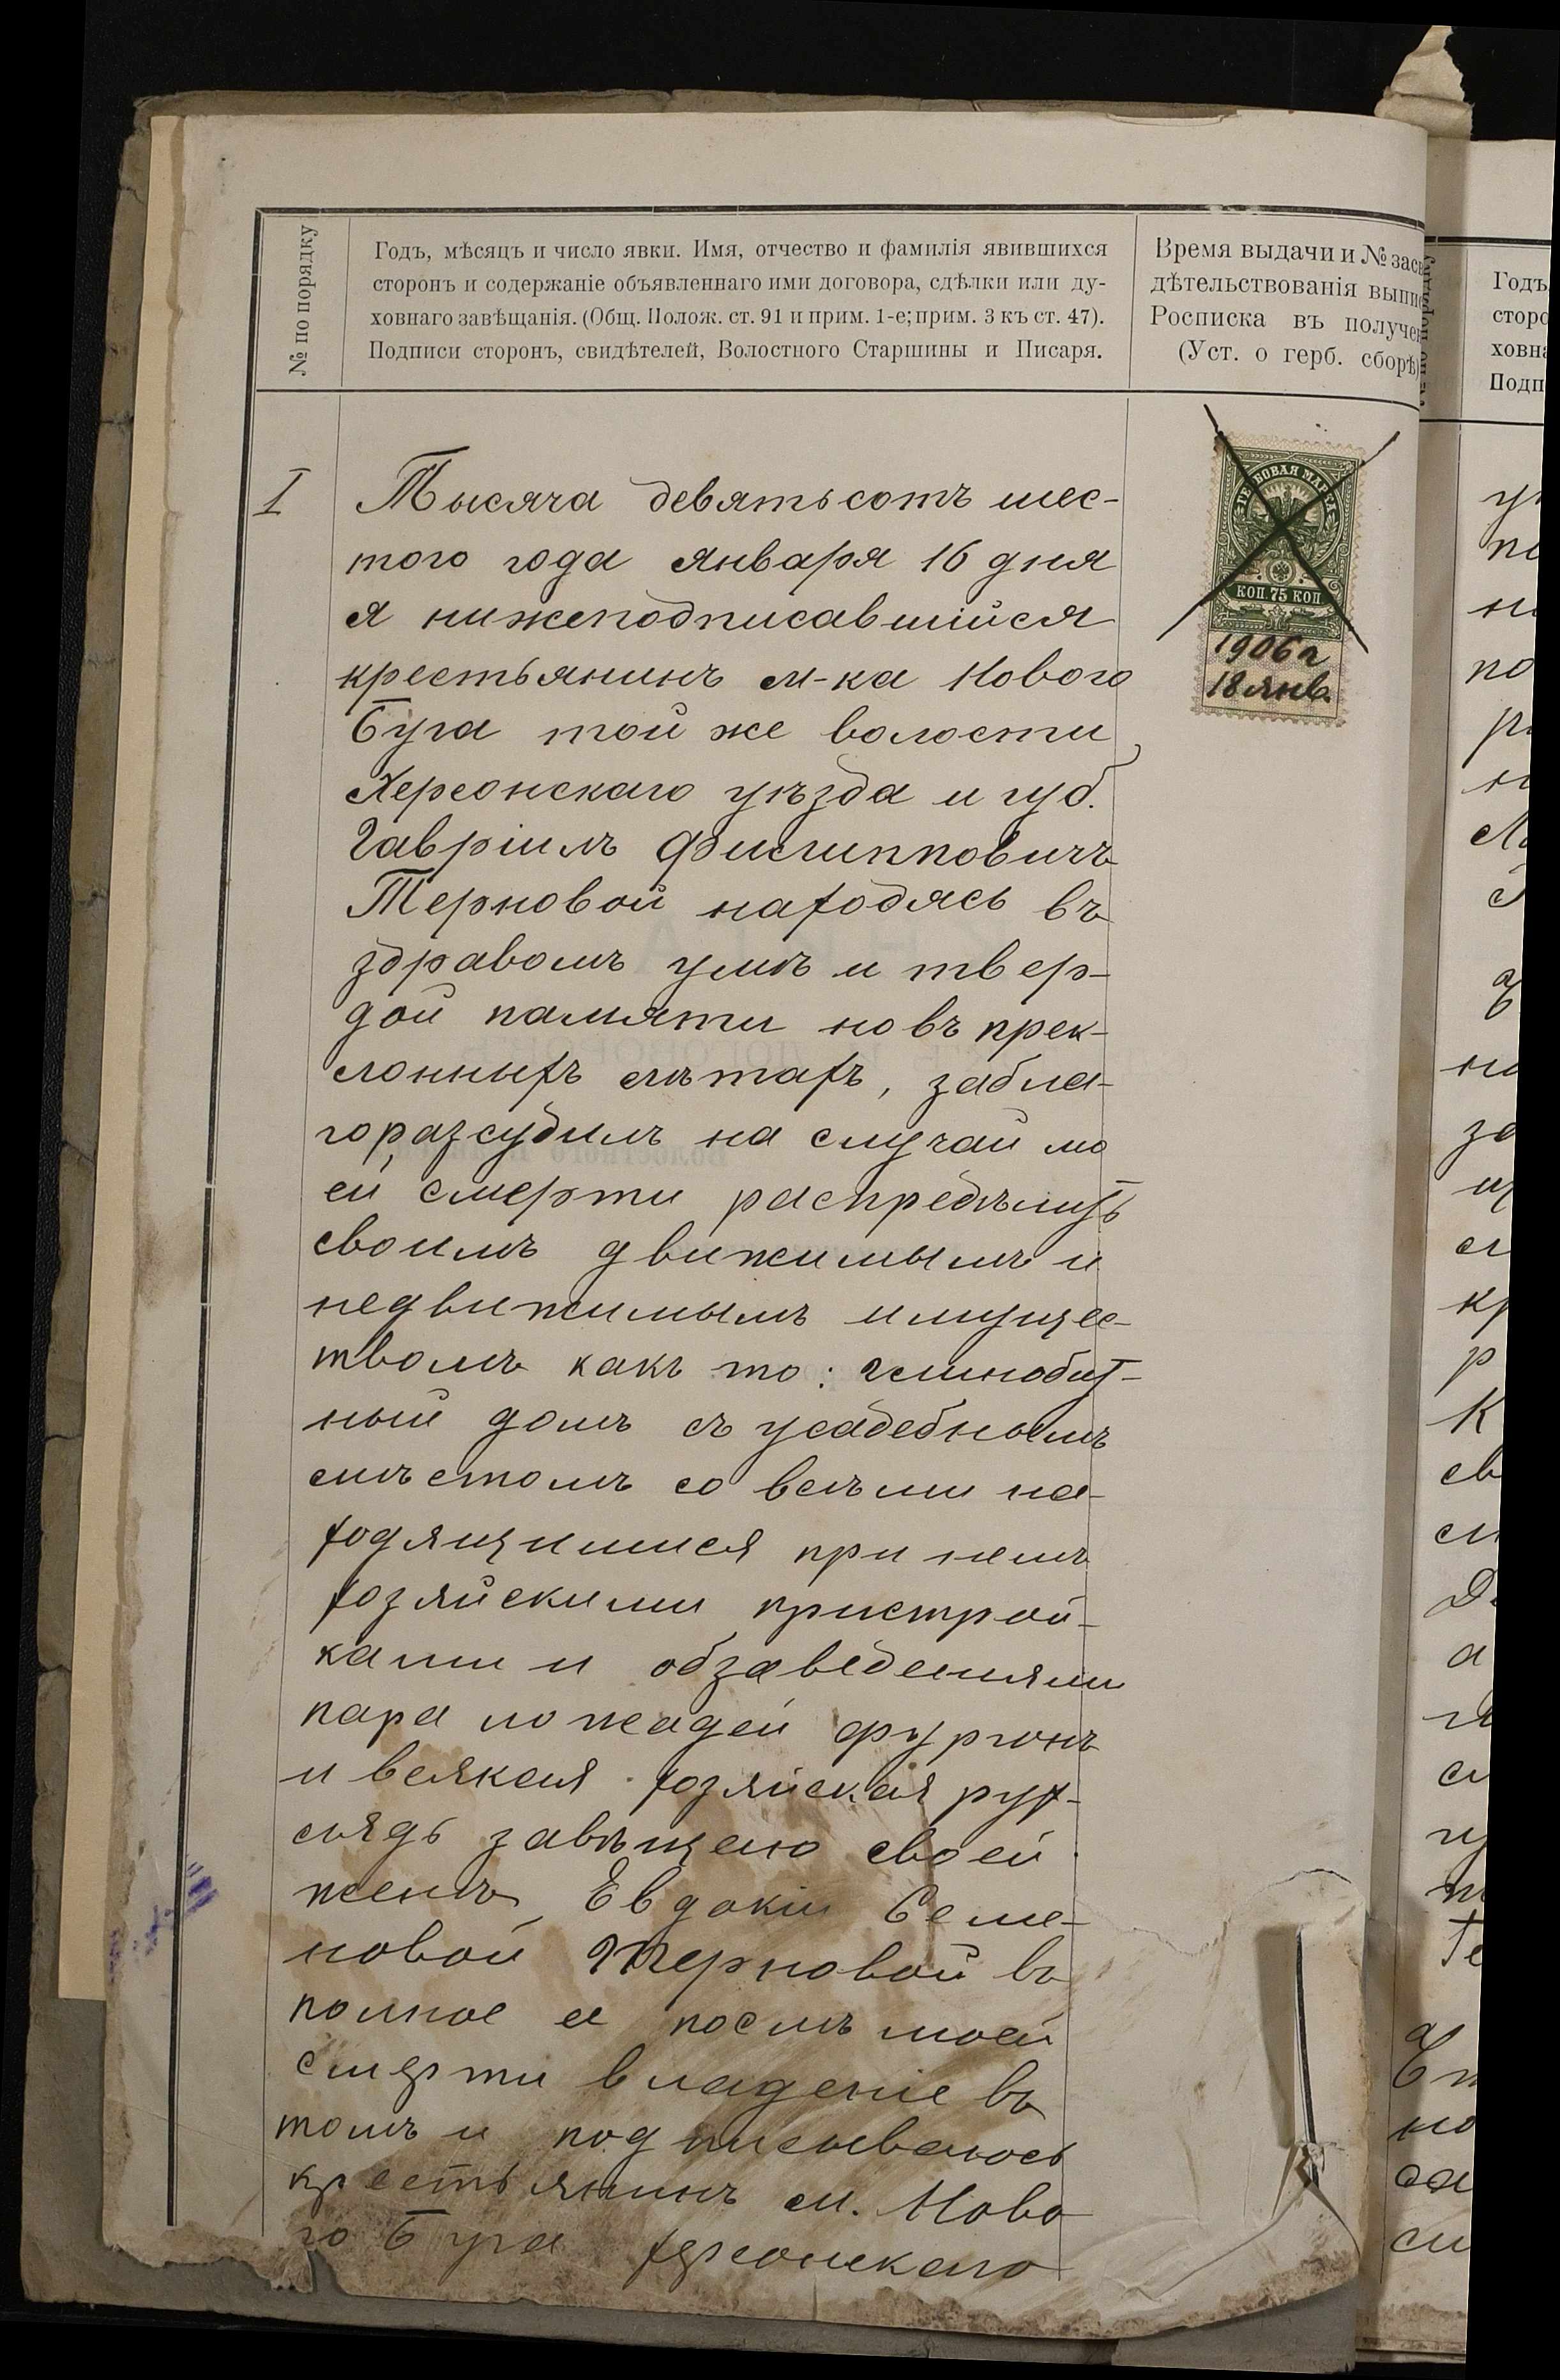 № по порядку
Годъ, мѣсяцъ и число явки. Имя, отчество и фамилія явившихся
сторонъ и содержаніе объявленнаго ими договора, сдѣлки или ду-
ховнаго завѣщанія. (Общ. Полож. ст. 91 и прим. 1-е; прим. 3 къ ст. 47).
Подписи сторонъ, свидѣтелей, Волостного Старшины и Писаря.
Время выдачи и № засв
дѣтельствованія выпис
Росписка въ получен
(Уст. о герб. сборѣ)
I
Тысяча девятьсотъ шес-
того года января 16 дня
я нижеподписавшійся
крестьянинъ м-ка Нового
Буга той же волости
Херсонскаго уѣзда и губ.
Гавріилъ Филипповичъ
Терновой находясь въ
здравомъ умѣ и твер-
дой памяти но въ прек-
лонныхъ лѣтахъ, забла-
горазсудилъ на случай мо
ей смерти распредѣлить
своимъ движимымъ и
недвижимымъ имущес-
твомъ какъ то: глинобит-
ный домъ съ усадебнымъ
мѣстомъ со всѣми на-
ходящимися при немъ
хозяйскими пристрой-
ками и обзаведеніями
пара лошадей фургонъ
и всякая хозяйская рух-
лядь завѣщаю своей
женѣ Евдокіи Семе-
новой Терновой въ
полное ее послѣ моей
смерти владеніе въ
томъ и подписываюсь
крестьянинъ м. Ново
го Буга Херсонскаго
ГЕРБОВАЯ МАРКА
КОП 75 КОП
1906 г
18 янв.
Годъ
сторо
ховна
Подп